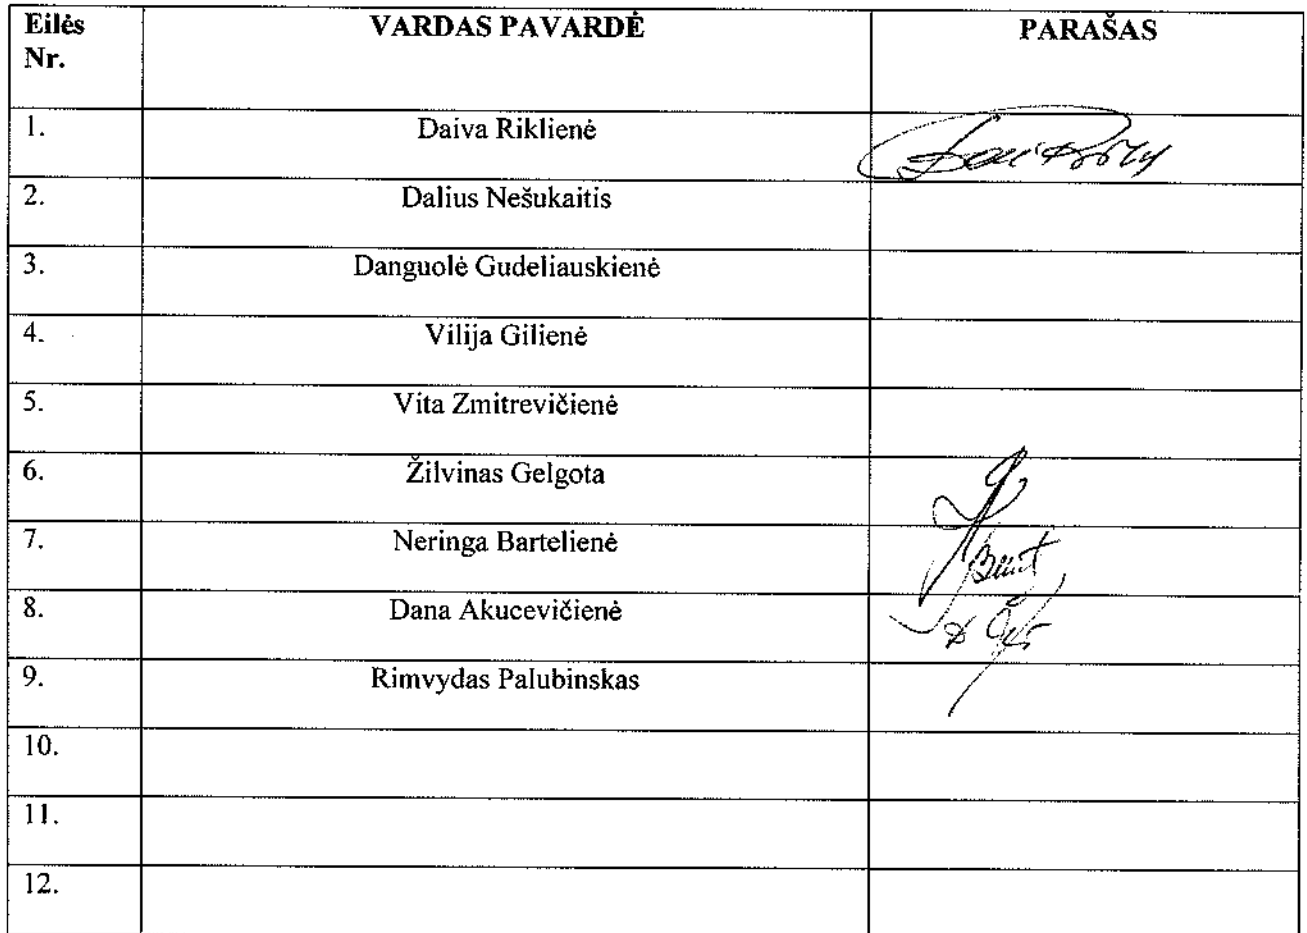 Eilės Nr. VARDAS PAVARDĖ PARAŠAS
1. Daiva Riklienė
2. Dalius Nešukaitis
3. Danguolė Gudeliauskienė
4. Vilija Gilienė
5. Vita Zmitrevičienė
6. Žilvinas Gelgota
7. Neringa Bartelienė
8. Dana Akucevičienė
9. Rimvydas Palubinskas
10.
11.
12.